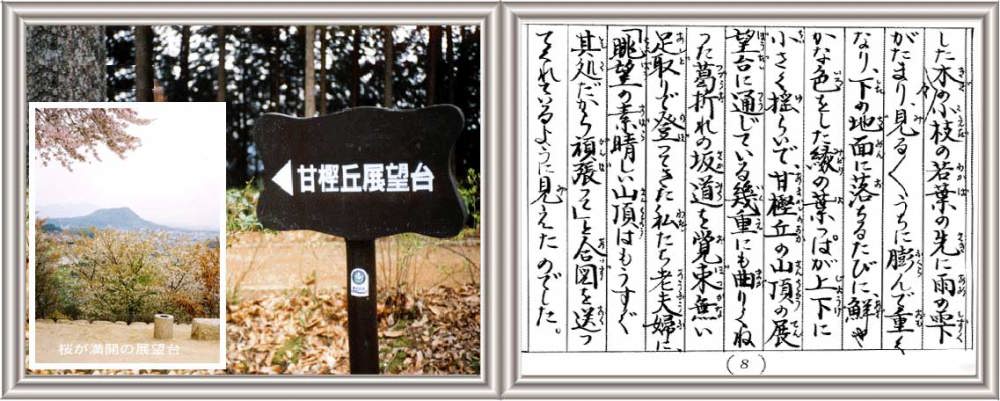 甘樫丘展望台
桜が満開の展望台
した木々の小枝の若葉の先に雨の雫
がたまり、見る〱うちに膨んで重く
なり、下の地面に落ちるたびに鮮や
かな色をした緑の葉っぱが上下に
小さく揺らいで、甘樫丘の山頂の展
望台に通じている幾重にも曲りくね
った葛折れの坂道を覚束無い
足取りで登ってきた私たち老夫婦に、
「眺望の素晴しい山頂はもうすぐ
其処だから頑張って」と合図を送っ
てくれているように見えたのでした。
(8)